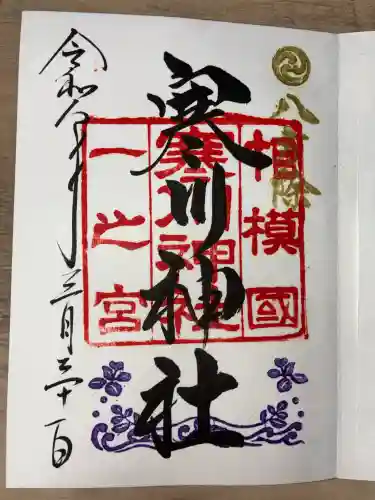 八方除
寒川神社
相模國
寒川神社
一之宮
令和八年三月三十一日